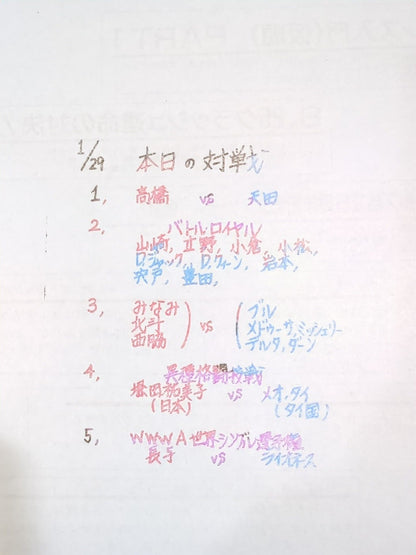 1/29 本日の対戦
1, 高橋 vs 天田
2, バトルロイヤル
山崎, 立野, 小倉, 小松,
D.ジャック, D.クィーン, 岩本,
宍戸, 豊田,
3, みなみ 北斗 西脇 vs ブル メドゥーサ,ミッシェリー デルタ,ダーン
4, 異種格闘技戦
堀田祐美子 vs メオ,タイ
(日本) (タイ国)
5, WWWA世界シングル選手権
長与 vs ライオネス